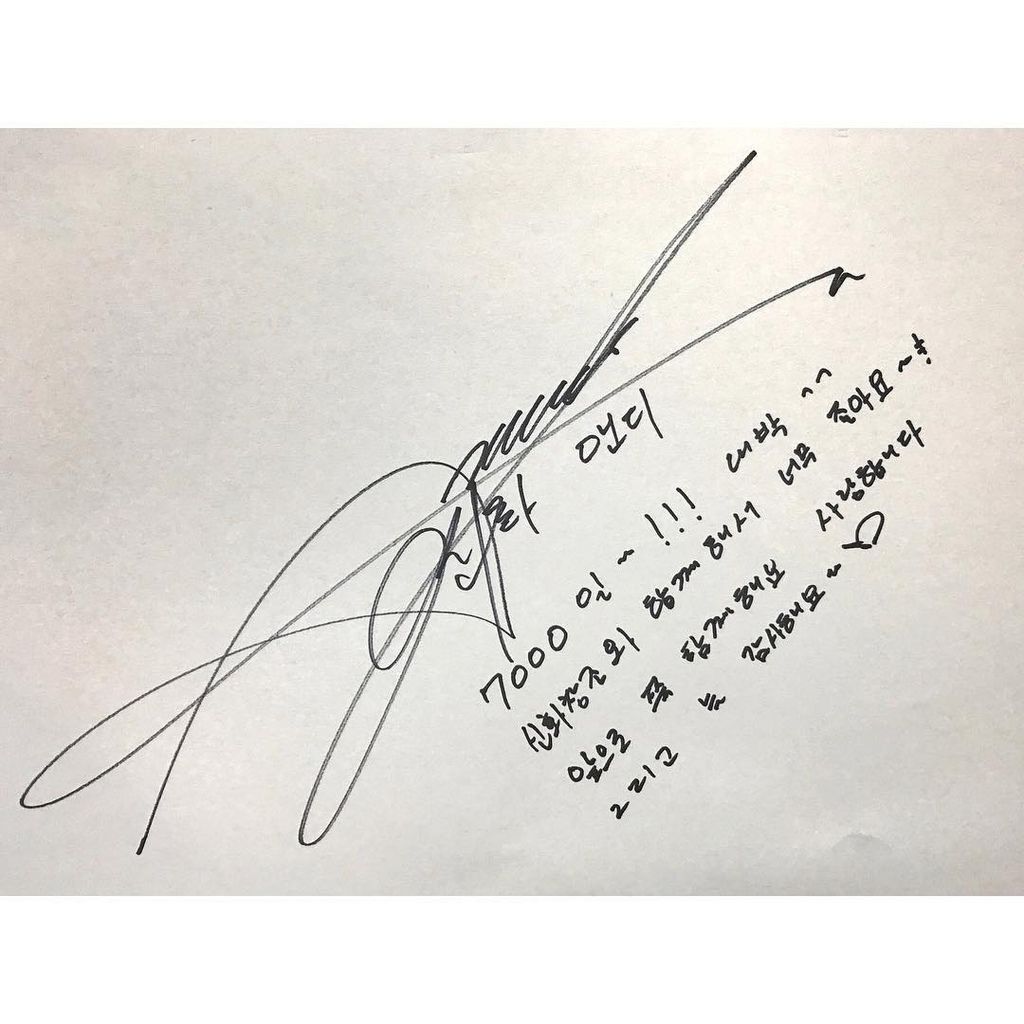 신화 앤디
7000 일~!!! 대박 ^^
신화창조와 함께해서 너무 좋아요~!
앞으로 쭉 함께해요 사랑합니다
그리고 늘 감사해요~♡